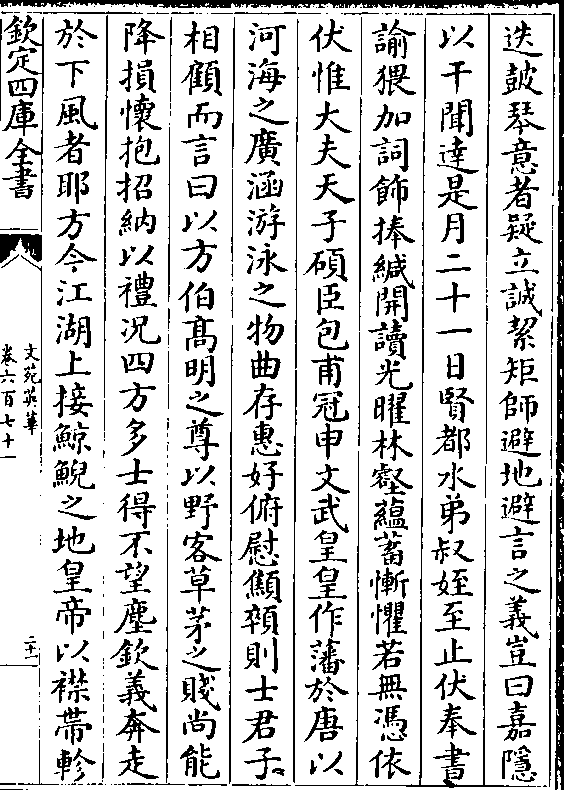 迭鼓琴意者疑立誠絜矩師避地避言之義豈曰嘉隱
以干聞達是月二十一日賢都水弟叔姪至止伏奉書
諭猥加詞飾捧緘開讀光曜林壑蘊蓄慚懼若無憑依
伏惟大夫天子碩臣包甫冠申文武皇皇作藩於唐以
河海之廣涵游泳之物曲存惠好俯慰顦顇則士君子
相顧而言曰以方伯髙明之尊以野客草茅之賤尚能
降損懷抱招納以禮況四方多士得不望塵欽義奔走
於下風者耶方今江湖上接鯨鯢之地皇帝以襟帶軫
欽定四庫全書
文苑英華
卷六百七十一
二十一